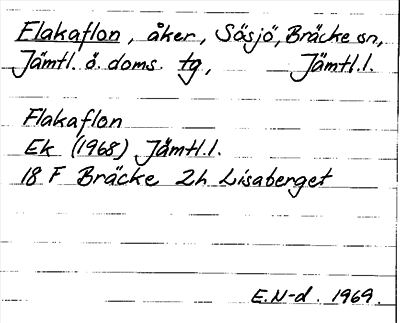 Flakaflon, åker, Sösjö, Bräcke sn,
Jämtl. ö. doms. tg, Jämtl.l.
Flakaflon
Ek (1968) Jämtl.l.
18 F Bräcke 2h Lisaberget
E.N-d. 1969.